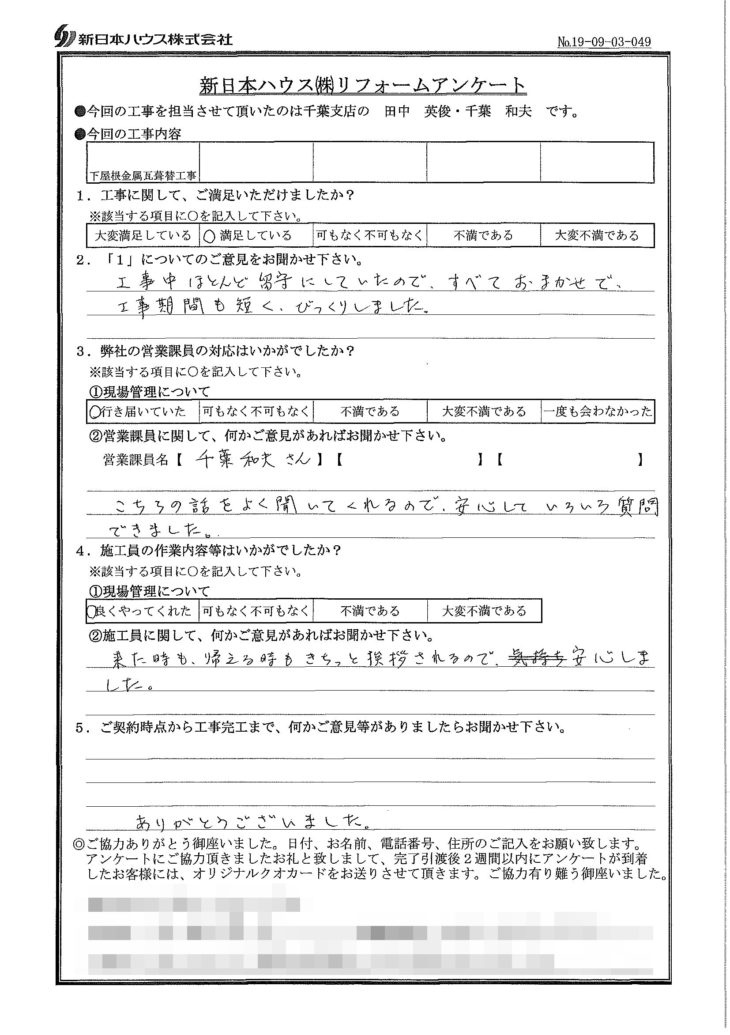 新日本ハウス株式会社
No.19-09-03-049
新日本ハウス㈱リフォームアンケート
●今回の工事を担当させて頂いたのは千葉支店の 田中 英俊・千葉 和夫 です。
●今回の工事内容
下屋根金属瓦葺替工事
1．工事に関して、ご満足いただけましたか？
※該当する項目に〇を記入して下さい。
大変満足している ○満足している 可もなく不可もなく 不満である 大変不満である
2．「1」についてのご意見をお聞かせ下さい。
工事中ほとんど留守にしていたので、すべておまかせで、
工事期間も短く、びっくりしました。
3．弊社の営業課員の対応はいかがでしたか？
※該当する項目に〇を記入して下さい。
①現場管理について
○行き届いていた 可もなく不可もなく 不満である 大変不満である 一度も会わなかった
②営業課員に関して、何かご意見があればお聞かせ下さい。
営業課員名【 千葉和夫さん 】【 】【 】
こちらの話をよく聞いてくれるので、安心していろいろ質問
できました。
4．施工員の作業内容等はいかがでしたか？
※該当する項目に〇を記入して下さい。
①現場管理について
○良くやってくれた 可もなく不可もなく 不満である 大変不満である
②施工員に関して、何かご意見があればお聞かせ下さい。
来た時も、帰える時もきちっと挨拶されるので、気持ち安心しま
した。
5．ご契約時点から工事完工まで、何かご意見等がありましたらお聞かせ下さい。
ありがとうございました。
◎ご協力ありがとう御座いました。日付、お名前、電話番号、住所のご記入をお願い致します。
アンケートにご協力頂きましたお礼と致しまして、完了引渡後2週間以内にアンケートが到着
したお客様には、オリジナルクオカードをお送りさせて頂きます。ご協力有り難う御座いました。